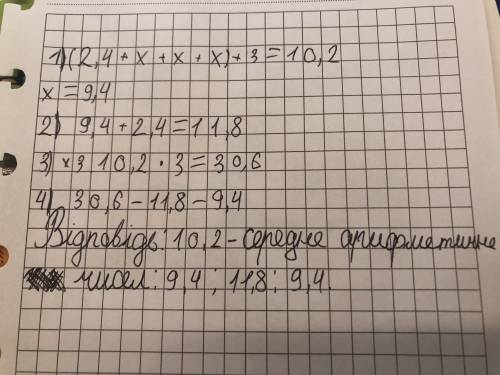 1) (2,4 + x + x + x) + 3 = 10,2
x = 9,4
2) 9,4 + 2,4 = 11,8
3) x3 10,2 · 3 = 30,6
4) 30,6 - 11,8 - 9,4
Відповідь: 10,2 - середнє арифметичне
чисел: 9,4 ; 11,8 ; 9,4.